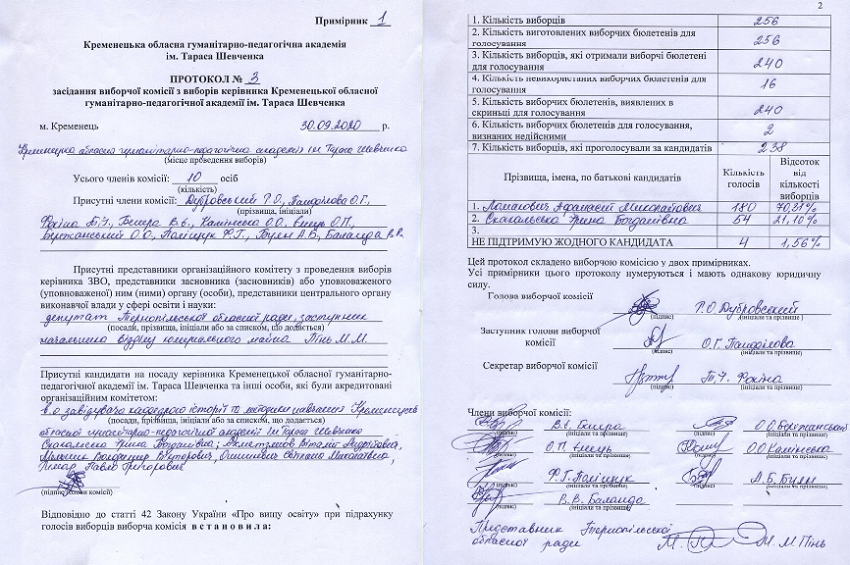 Примірник 1
Кременецька обласна гуманітарно-педагогічна академія
ім. Тараса Шевченка
ПРОТОКОЛ № 3
засідання виборчої комісії з виборів керівника Кременецької обласної
гуманітарно-педагогічної академії ім. Тараса Шевченка
м. Кременець 30.09.2020 р.
Кременецька обласна гуманітарно-педагогічна академія ім Тараса Шевченка
(місце проведення виборів)
Усього членів комісії: 10 осіб
(кількість)
Присутні члени комісії: Дубровський Р.О.,
(прізвища, ініціали)
Фоіна Т.Г., В.В., Камінська О.О., О.П.,
Бертанський О.О., Поліщук Ф.Г., А.Б., Баландо В.В.
Присутні представники організаційного комітету з проведення виборів
керівника ЗВО, представники засновника (засновників) або уповноваженого
(уповноваженої) ним (ними) органу (особи), представники центрального органу
виконавчої влади у сфері освіти і науки:
депутат Тернопільської обласної ради, заступник
(посади, прізвища, ініціали або за списком, що додається)
начальника відділу комунального майна Пінь М.М.
Присутні кандидати на посаду керівника Кременецької обласної гуманітарно-
педагогічної академії ім. Тараса Шевченка та інші особи, які були акредитовані
організаційним комітетом:
в.о. завідувача кафедрою історії та методики навчання Кременецької
(посади, прізвища, ініціали або за списком, що додається)
обласної гуманітарно-педагогічної академії ім Тараса Шевченка
Скакальська Ірина Богданівна; Віталій Андрійович,
Володимир Вікторович, Світлана Михайлівна,
Павло Григорович
(підпис голови комісії)
Відповідно до статті 42 Закону України «Про вищу освіту» при підрахунку
голосів виборців виборча комісія встановила:
2
1. Кількість виборців 256
2. Кількість виготовлених виборчих бюлетенів для
голосування 256
3. Кількість виборців, які отримали виборчі бюлетені
для голосування 240
4. Кількість невикористаних виборчих бюлетенів для
голосування 16
5. Кількість виборчих бюлетенів, виявлених в
скриньці для голосування 240
6. Кількість виборчих бюлетенів для голосування,
визнаних недійсними 2
7. Кількість виборців, які проголосували за кандидатів 238
Прізвища, імена, по батькові кандидатів Кількість голосів Відсоток від кількості виборців
1. Ломакович Афанасій Миколайович 180 70,31%
2. Скакальська Ірина Богданівна 54 21,10%
3.
НЕ ПІДТРИМУЮ ЖОДНОГО КАНДИДАТА 4 1,56%
Цей протокол складено виборчою комісією у двох примірниках.
Усі примірники цього протоколу нумеруються і мають однакову юридичну
силу.
Голова виборчої комісії Р.О.Дубровський
(підпис) (ініціали та прізвище)
Заступник голови виборчої
комісії О.Г.
(підпис) (ініціали та прізвище)
Секретар виборчої
комісії Т.Г. Фоіна
(підпис) (ініціали та прізвище)
Члени виборчої комісії:
В.В. О.О.Бертанський
(підпис) (ініціали та прізвище) (підпис) (ініціали та прізвище)
О.П. О.О.Камінська
(підпис) (ініціали та прізвище) (підпис) (ініціали та прізвище)
Ф.Г.Поліщук А.Б.
(підпис) (ініціали та прізвище) (підпис) (ініціали та прізвище)
В.В. Баландо
(підпис) (ініціали та прізвище)
Представник Тернопільської
обласної ради М.М.Пінь